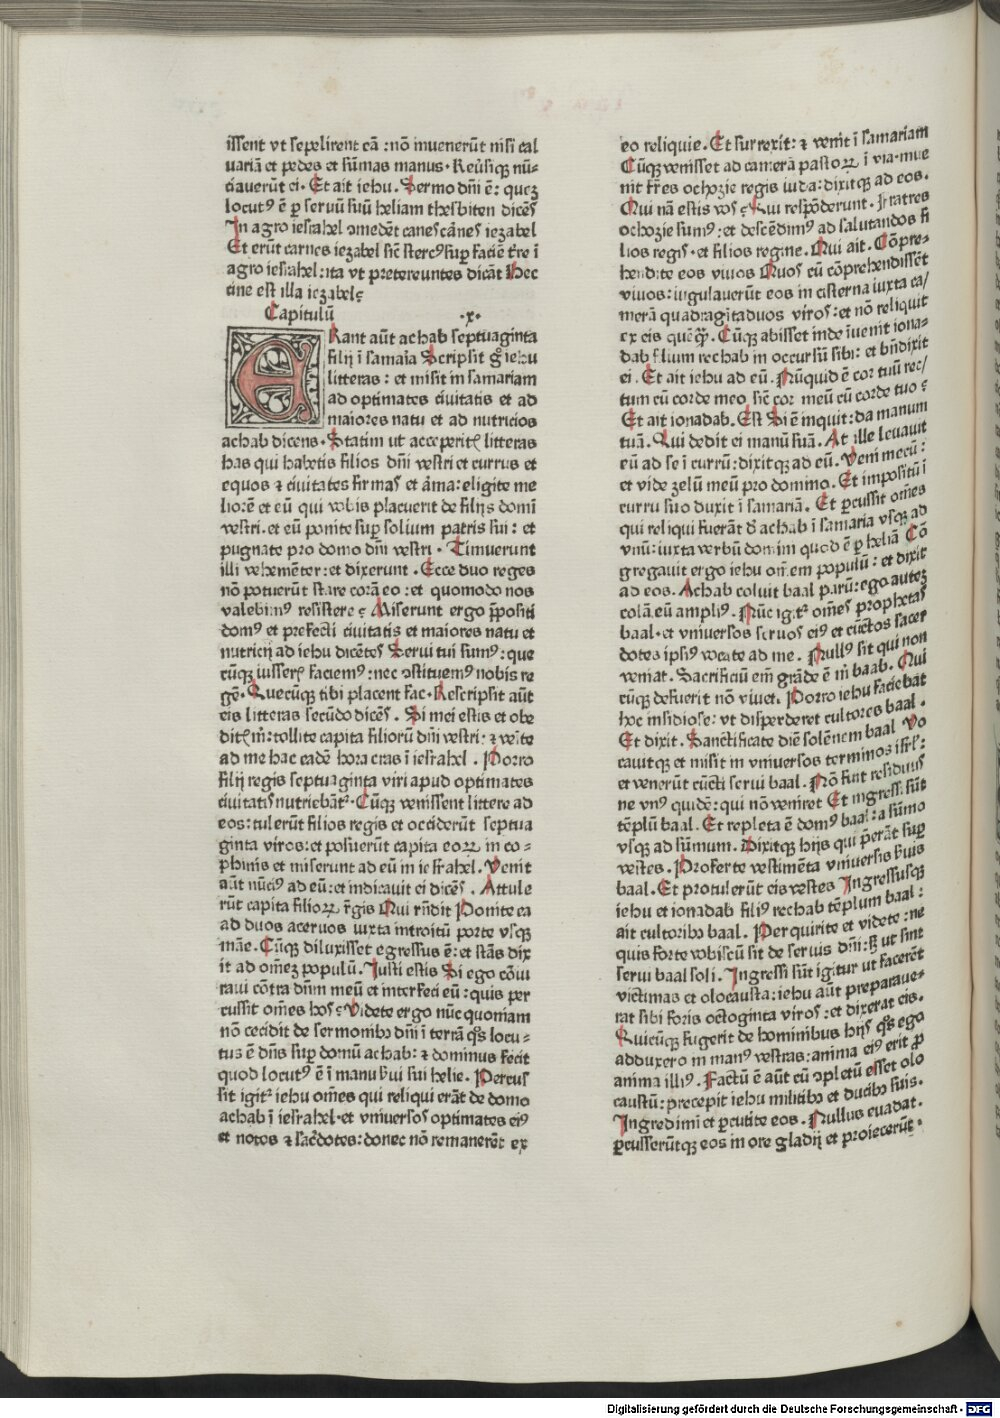 issent vt sepelirent eā : nō inuenerūt nisi cal
uariā et pedes et sūmas manus · Reūsiqꝫ nū-
ciauerūt ei · Et ait iehu. Sermo dñi ē: quez
locutꝰ ē ꝑ seruū suū heliam thesbiten dicēs
In agro iesrahel ↄmedēt canes cānes iezabel
Et erūt carnes iezabel sic̄ stercꝰ suꝑ faciē tr̄e ī
agro iesrahel: ita vt pretereuntes dicāt Hec
cine est illa iezabelꝫ
Capitulū ·x·
ERant aūt achab septuaginta
filij ī samaīa Scripsit g̊ iehu
litteras : et misit in samariam
ad optimates ciuitatis et ad
maiores natu et ad nutricios
achab dicens · Statim ut acceperitꝭ litteras
has qui habetis filios dñi vestri et currus et
equos ⁊ ciuitates firmas et āma: eligite me
liorē et eū qui vobis placuerit de filijs domī
vestri. et eū ponite suꝑ solium patris sui : et
pugnate pro domo dñi vestri · Timuerunt
illi vehemēter: et dixerunt · Ecce duo reges
nō potuerūt stare corā eo : et quomodo nos
valebimꝰ resistere ꝫ Miserunt ergo ꝓpositi
domꝰ et prefecti ciuitatis et maiores natu et
nutricij ad iehu dicētes Serui tui sumꝰ: que
cūqꝫ iusserꝭ faciemꝰ: nec ↄstituemꝰ nobis re
gē · Quecūqꝫ tibi placent fac · Rescripsit aūt
eis litteras secūdo dicēs . Si mei estis et obe
ditꝭ m̄: tollite capita filiorū dñi vestri: ⁊ vēite
ad me hac eadē hora cras ī iesrahel . Porro
filij regis septuaginta viri apud optimates
ciuitatis nutriebāt᷑ · Cūqꝫ venissent littere ad
eos: tulerūt filios regis et occiderūt septua
ginta viros: et posuerūt capita eoꝝ in co-
phinis et miserunt ad eū in iesrahel . Venit
aūt nūciꝰ ad eū: et indicauit ei dicēs . Attule
rūt capita filioꝝ r̄gis Qui rn̄dit Ponite ea
ad duos aceruos iuxta introitū porte vsqꝫ
māe. Cūqꝫ diluxisset egressus ē: et stās dix
it ad om̄ez populū. Iusti estis Si ego cōiu
raui cōtra dn̄m meū et interfeci eū : quis per
cussit om̄es hos ꝫ Videte ergo nūc quoniam
nō cecidit de sermonibꝰ dñi ī terrā qs̄ locu-
tus ē dn̄s suꝑ domū achab: ⁊ dominus fecit
quod locutꝰ ē ī manu ẜui sui helie. Percus
sit igit᷑ iehu om̄es qui reliqui erāt de domo
achab ī iesrahel · et vniuersos optimates eiꝰ
et notos ⁊ sac̄dotes: donec nō remanerēt ex
eo reliquie. Et surrexit: ⁊ venit ī samariam
Cūqꝫ venisset ad camerā pastoꝝ ī via · inue
nit fr̄es ochozie regis iuda: dixitqꝫ ad eos.
Qui nā estis vos ꝫ Qui respōderunt · Fratres
ochozie sumꝰ: et descēdimꝰ ad salutandos fi
lios regis · et filios regine. Qui ait. Cōpre-
hendite eos viuos Quos cū cōprehendissēt
viuos: iugulauerūt eos in cisterna iuxta ca/
merā quadragītaduos viros: et nō reliquit
ex eis quēqꝫ̄. Cūqꝫ abisset inde īuenit iona-
dab filium rechab in occursū sibi: et bn̄dixit
ei. Et ait iehu ad eū. Nūquid ē cor tuū rec/
tum cū corde meo sic̄ cor meū cū corde tuo ꝫ
Et ait ionadab. Est Si ē inquit: da manum
tuā. Qui dedit ei manū suā. At ille leuauit
eū ad se ī currū: dixitqꝫ ad eū. Veni mecū:
et vide zelū meū pro domino. Et impositū ī
curru suo duxit ī samariā. Et ꝑcussit om̄es
qui reliqui fuerāt d̄ achab ī samaria vsqꝫ ad
vnū: iuxta verbū domini quod ē ꝑ heliā Cō
gregauit ergo iehu om̄em populū: et dixit
ad eos. Achab coluit baal parū: ego autez
colā eū ampliꝰ. Nūc igit᷑ om̄es prophetas
baal · et vniuersos seruos eiꝰ et cūctos sacer
dotes ipsiꝰ vocate ad me. Nullꝰ sit qui non
veniat. Sacrificiū em̄ grāde ē m̄ baab. Qui
cūqꝫ defuerit nō viuet. Porro iehu faciebat
hoc insidiose: vt disperderet cultores baal.
Et dixit. Sanctificate diē solēnem baal Vo
cauitqꝫ et misit in vniuersos terminos isrl̄:
et venerūt cūcti serui baal. Nō fuit residuus
ne vnꝰ quidē: qui nō veniret Et ingressi sūt
tēplū baal. Et repleta ē domꝰ baal: a sūmo
vsqꝫ ad sūmum. Dixitqꝫ hijs qui ꝑerāt suꝑ
vestes. Proferte vestimēta vniuersis ẜuis
baal. Et protulerūt eis vestes Ingressusqꝫ
iehu et ionadab filiꝰ rechab tēplum baal:
ait cultoribꝰ baal. Perquirite et videte: ne
quis forte vobiscū sit de seruis dñi: sꝫ ut sint
serui baal soli. Ingressi sūt igitur ut facerēt
victimas et olocausta: iehu aūt preparaue-
rat sibi foris octoginta viros: et dixerat eis.
Quicūqꝫ fugerit de hominibus hijs qs̄ ego
adduxero in manꝰ vestras: anima eiꝰ erit ꝓ
anima illiꝰ. Factū ē aūt cū ↄpletū esset olo
caustū: precepit iehu militibꝰ et ducibꝰ suis.
Ingredimī et ꝑcutite eos. Nullus euadat.
ꝑcusserūtqꝫ eos in ore gladij et proiecerūt.
Digitalisierung gefördert durch die Deutsche Forschungsgemeinschaft - DFG